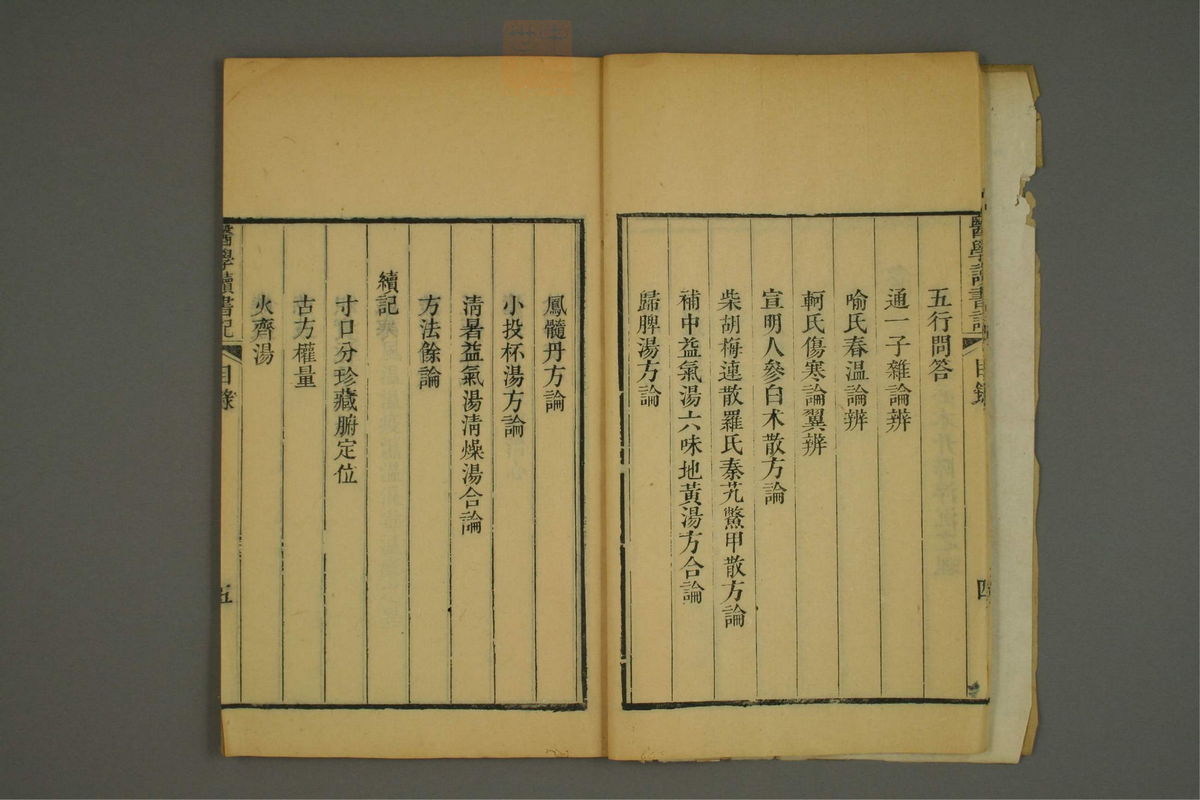 醫學讀書記
目錄
四
五行問答
通一子雜論辨
喻氏春温論辨
軻氏傷寒論翼辨
宣明人參白术散方論
柴胡梅連散羅氏秦艽鱉甲散方論
補中益氣湯六味地黃湯方合論
歸脾湯方論
鳳髓丹方論
小投杯湯方論
淸暑益氣湯淸燥湯合論
方法餘論
續記
寸口分珍藏腑定位
古方權量
火齊湯
醫學讀書記
目錄
五